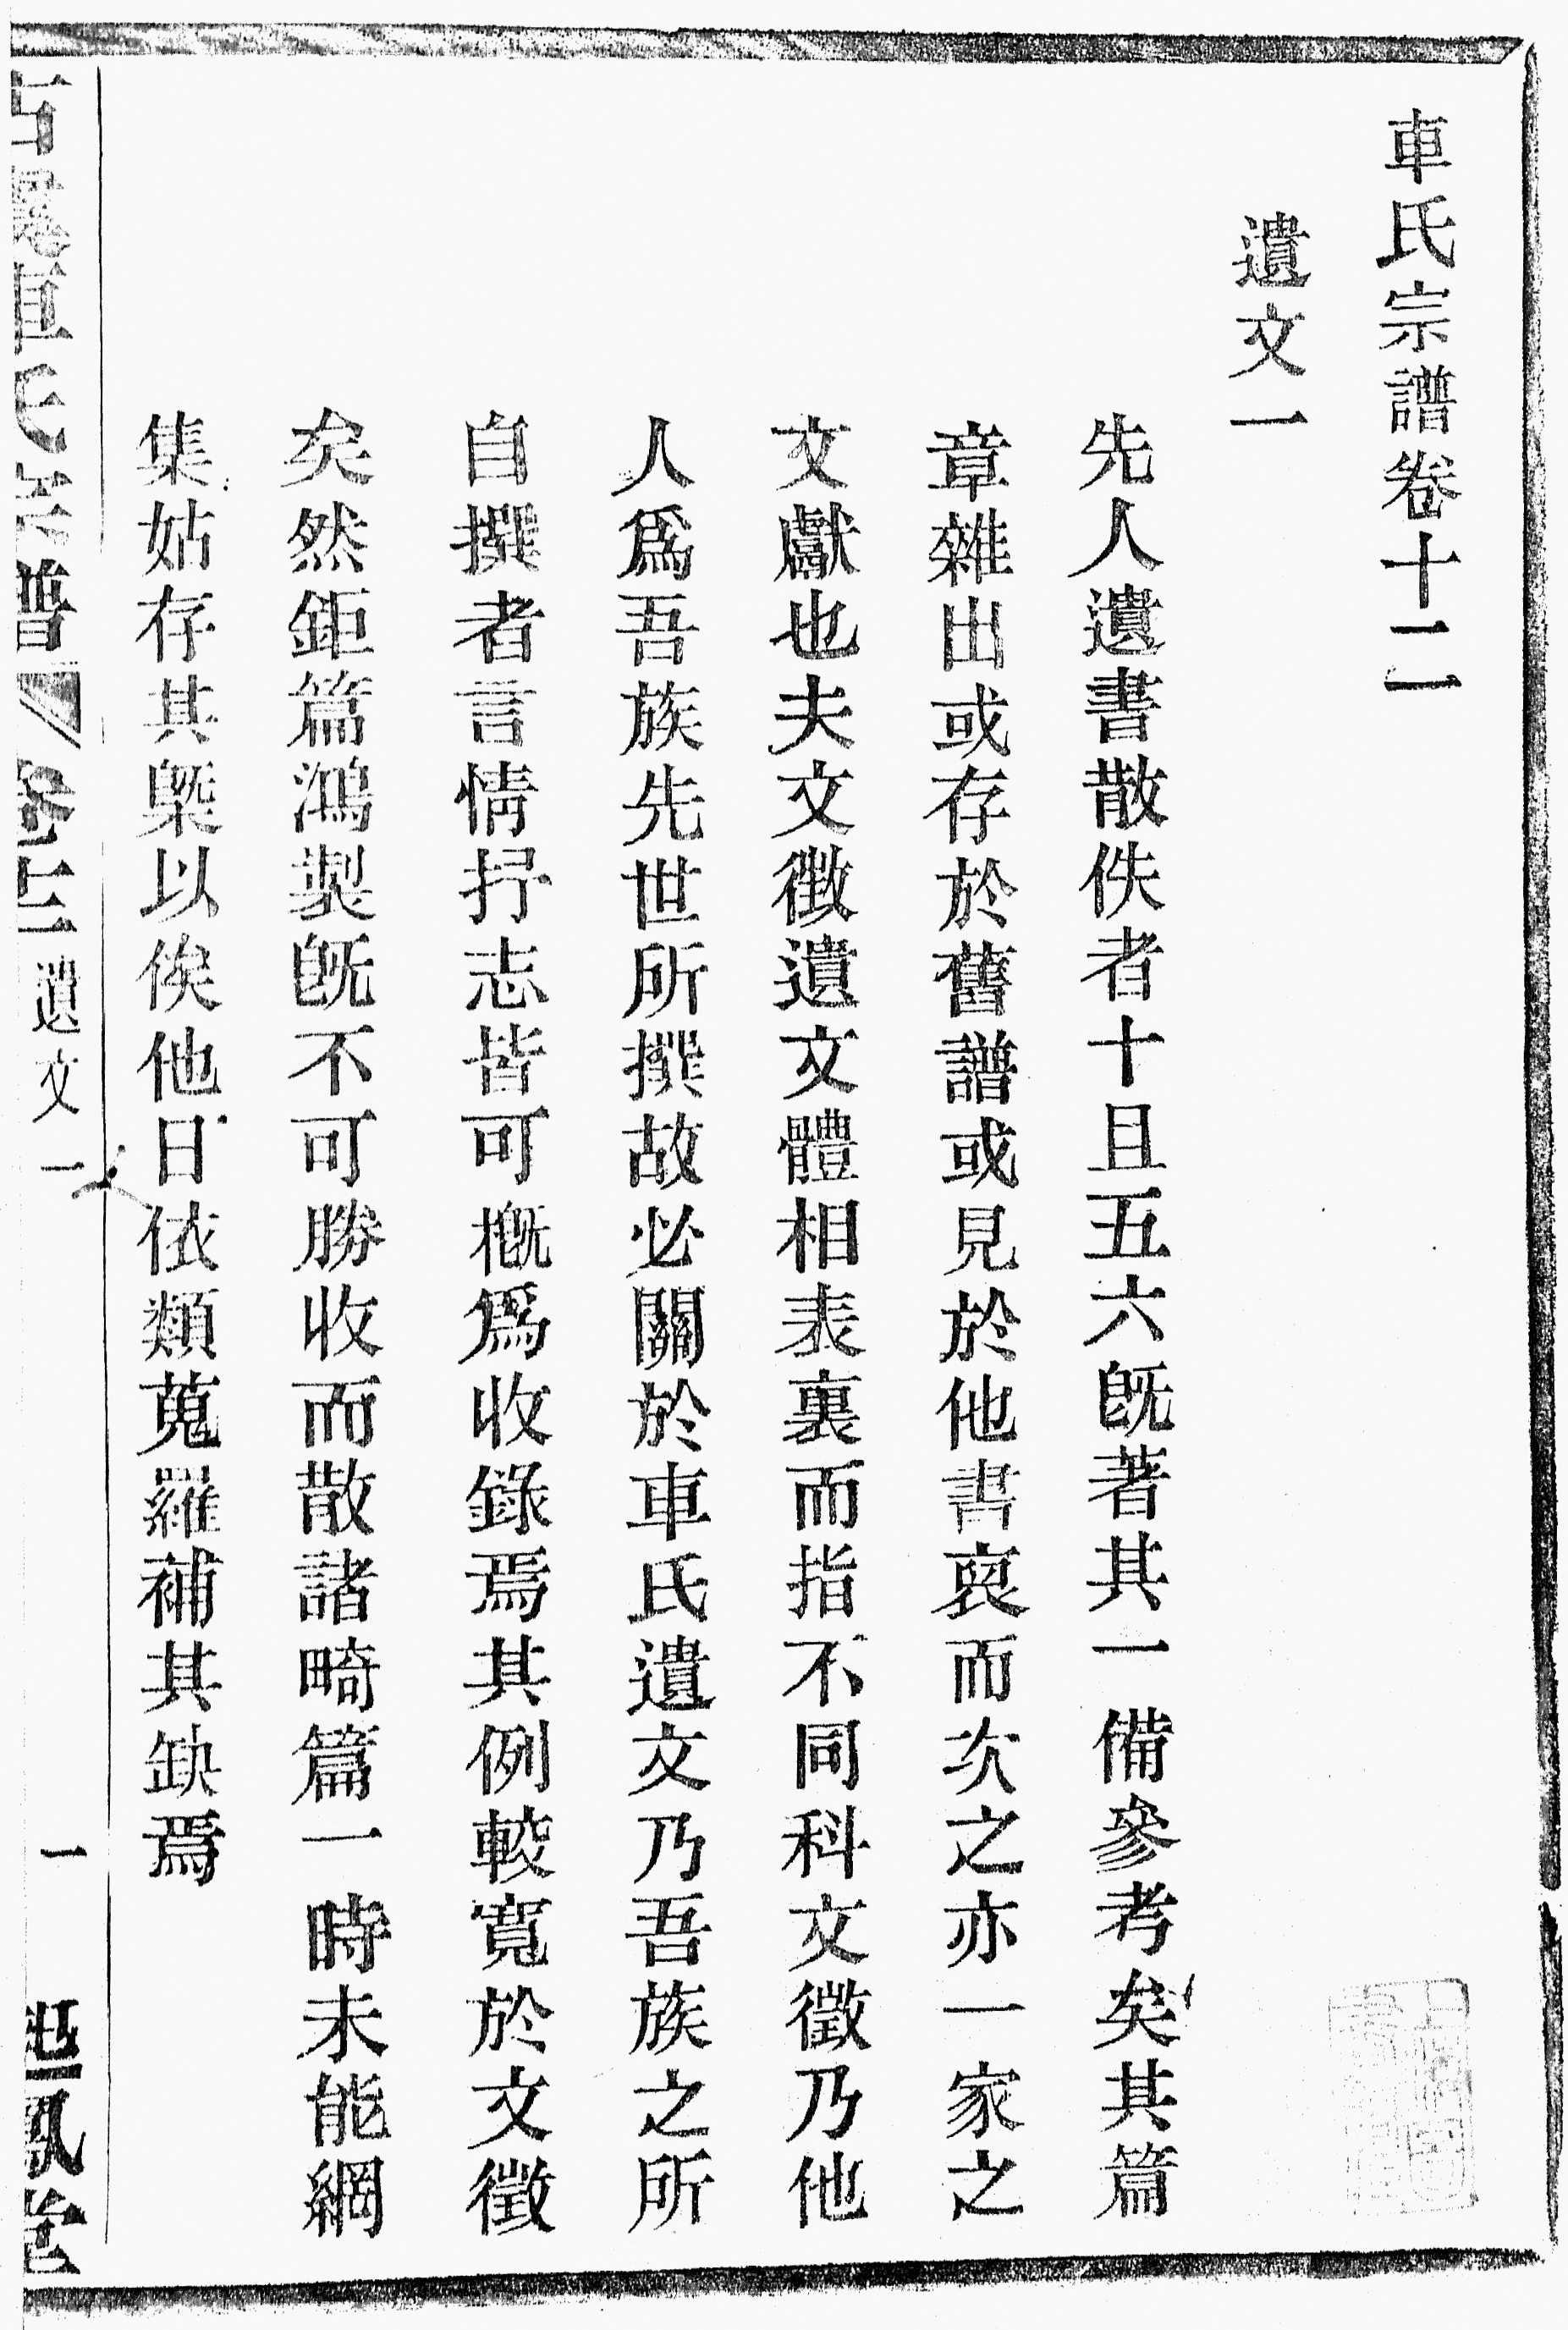 車氏宗譜卷十二
遺文一
先人遺書散佚者十且五六旣著其一備參考矣其篇
章雜出或存於舊譜或見於他書裒而次之亦一家之
文獻也夫文徵遺文體相表裏而指不同科文徵乃他
人爲吾族先世所撰故必關於車氏遺文乃吾族之所
自撰者言情抒志皆可槪爲收錄焉其例較寬於文徵
矣然鉅篇鴻製旣不可勝收而散諸畸篇一時未能網
集姑存其槩以俟他日依類蒐羅補其缺焉
車氏宗譜 卷十二 遺文一 一